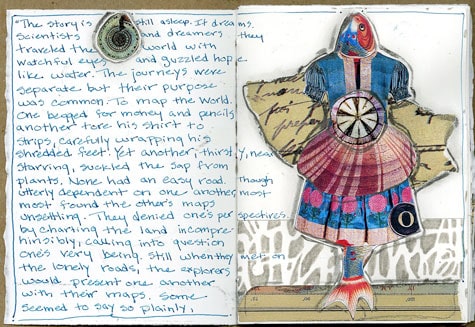 "The story is still asleep. It dreams.
Scientists and dreamers they
traveled the world with
watchful eyes and guzzled hope
like water. The journeys were
separate but their purpose
was common. To map the World.
One begged for money and pencils
another tore his shirt to
strips, carefully wrapping his
shredded feet. Yet another, thirsty, near
starving, suckled the sap from
plants. None had an easy road. Though
utterly dependent on one another, most
most found the other's maps
unsettling. They denied one's perspectives
by charting the land incompre-
hinsibly, calling into question
one's very being. Still when they met on
the lonely roads, the explorers
would present one another
with their maps. Some
seemed to say so plainly,
for
O